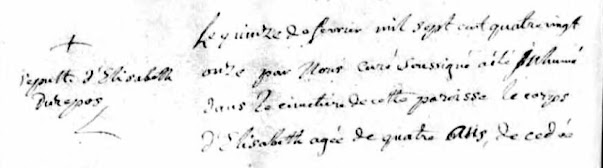 sepult. d'Elisabeth
Durepos
Le quinze de fevrier mil sept cent quatre vingt
onze par Nous curé soussigné a été Inhumé
dans le cimetiere de cette paroisse le corps
d'Elisabeth agée de quatre ans, de cedée